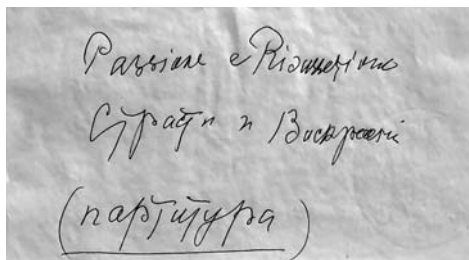 Passione e Risurrezione
Страсти и Воскресение
(партитура)